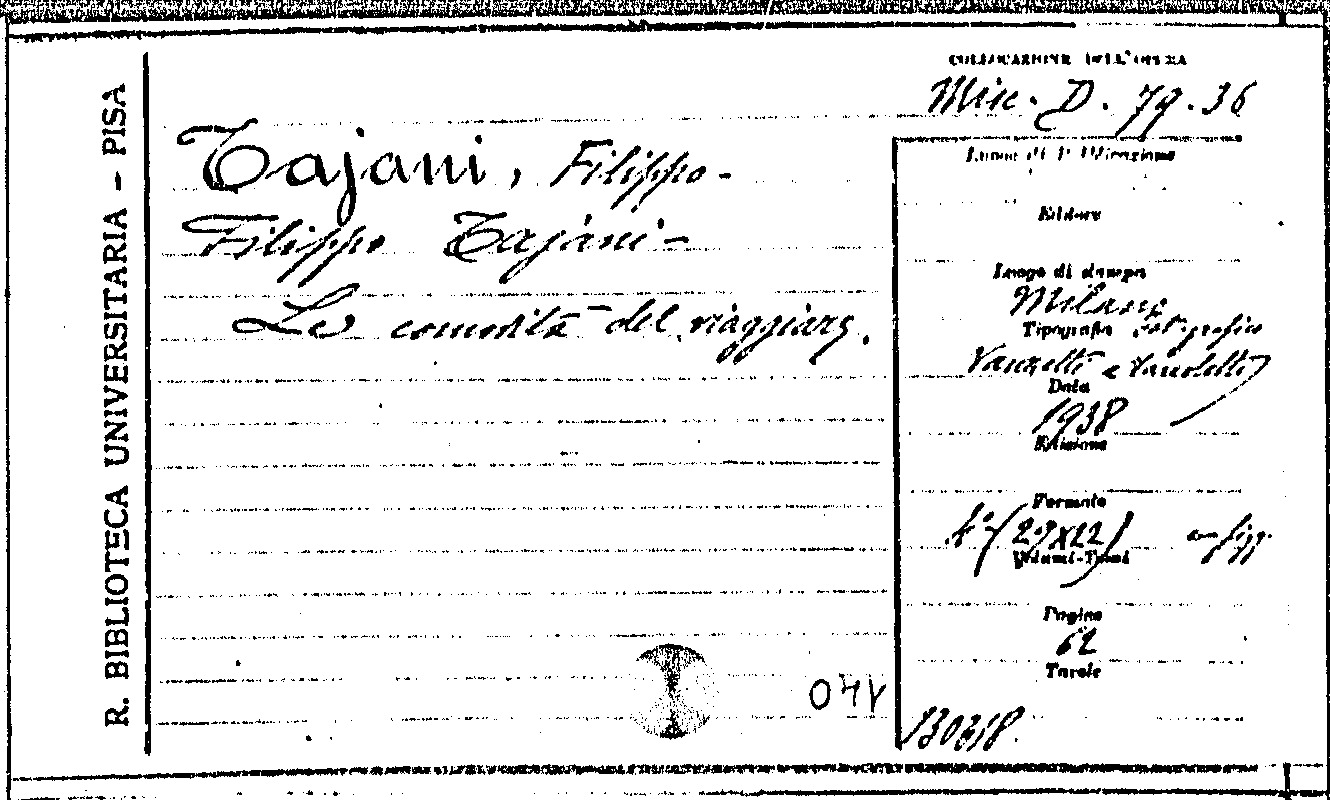 R. BIBLIOTECA UNIVERSITARIA - PISA
COLLOCAZIONE DELL'OPERA
Misc. D. 79.36
Tajani, Filippo -
Filippo Tajani -
Le comodità del viaggiare.
Luogo di Pubblicazione
Editore
Luogo di stampa
Milano
Tipografia
Vanzetti e Vanoletti
Data
1938
Edizione
Formato
4° (29x22) con figg.
Volumi-Tomi
Pagine
62
Tavole
130318.